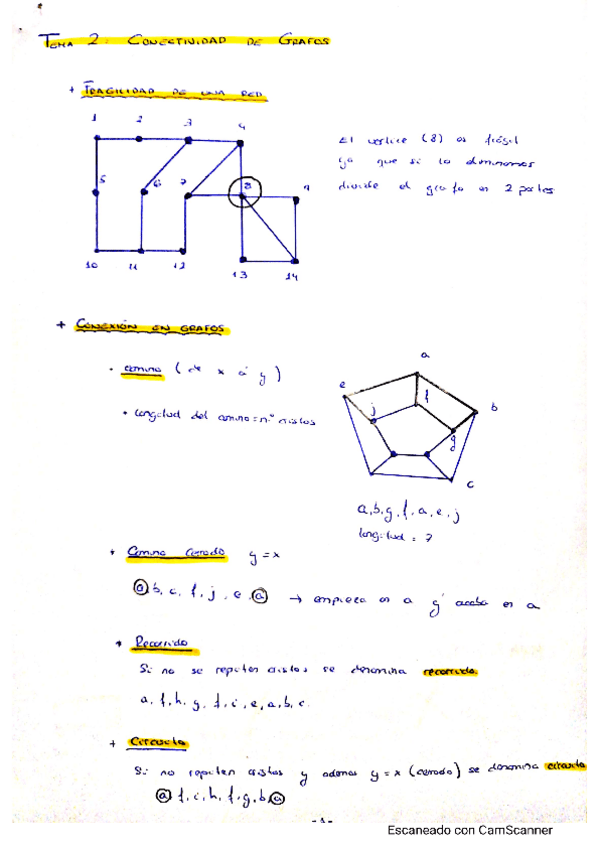 TEMA 2: CONECTIVIDAD DE GRAFOS
+ FRAGILIDAD DE UNA RED
1 2 3 4
5 6 7 8 9
10 11 12 13 14
El vertice (8) es frágil
ya que si lo eliminamos
divide el grafo en 2 partes
+ CONEXIÓN EN GRAFOS
· camino (de x a y)
• longitud del camino = nº aristas
a
e j f b
g
c
a, b, g, f, a, e, j
longitud = 7
+ Camino Cerrado y = x
a, b, c, f, j, e, a → empieza en a y acaba en a
+ Recorrido
Si no se repiten aristas se denomina recorrido.
a, f, h, g, f, i, e, a, b, c.
+ Circuito
Si no repiten aristas y además y = x (cerrado) se denomina circuito
a f, i, h, f, g, b, a
-1-
Escaneado con CamScanner